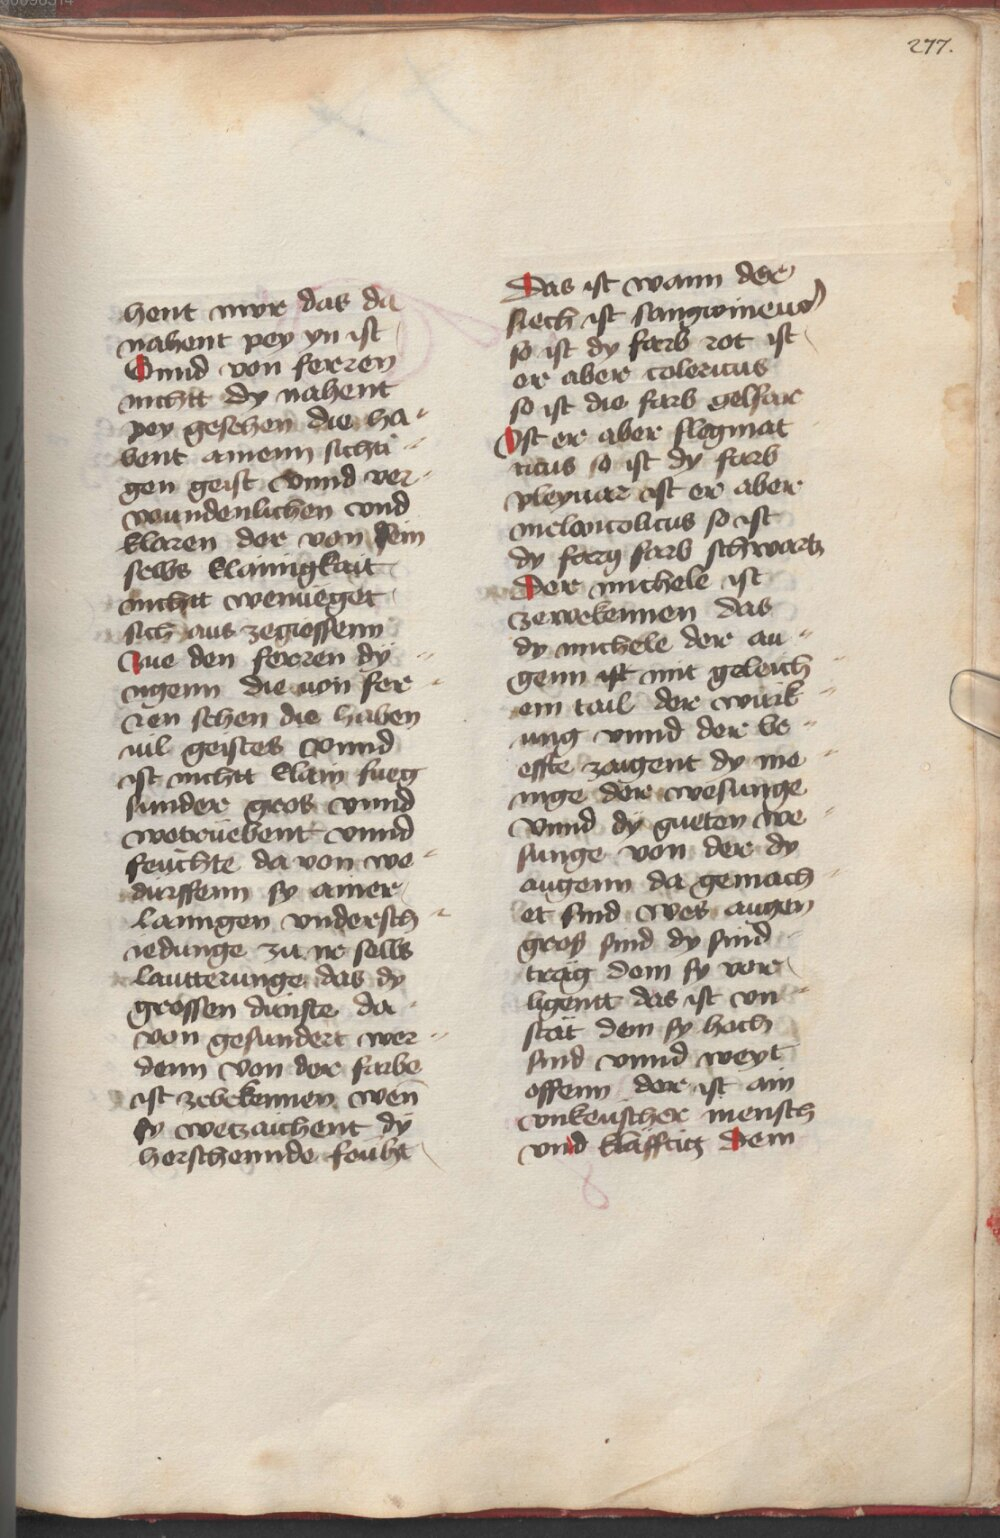 277.
hent nwr das da
nahent pey yn ist
Vnnd von ferren
nichtt dy nahent
pey gesehen die ha-
bent ainenn sichti-
gen geist vnnd ver-
wundenlichen vnd
klaren der von sein
selbs klainigkait
nichtt weweget
sich aus zegiessenn
Zue den ferren dy
ugenn die uon fer-
ren sehen die haben
uil geistes vnnd
ist nichtt klain fueg
sunder gros vnnd
wetruebent vnnd
feuchte da von we-
durffenn sy ainer
langen vndersch-
iedunge zu ir selbs
lautterunge das dy
grossen dunste da
von gesundert wer-
denn von der farbe
ist zebekennen wen
sy wetzaichent dy
herschennde feuht
Das ist wann der
siech ist sangwineus
so ist dy farb rot ist
er aber colericus
so ist die farb gelfar
Ist er aber flegmat
ticus so ist dy farb
pleyuar ist er aber
melancolicus so ist
dy farb schwartz
Der michele ist
zewekennen das
dy michele der au-
genn ist mit geleich
em tail der wurk-
ung vnnd der be-
effte zaigent dy me-
nige der wesunge
Vnnd dy gueten we-
sunge von der dy
augenn da gemach-
et sind wes augen
gross sind dy sind
träg dem sy vor
ligentt das ist vn-
stät dem sy hoch
sind vnnd weyt
offenn der ist ain
vnkeuscher mensch
vnd klaffitig Dem